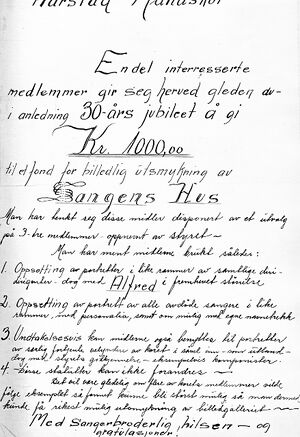 Harstad Mannskor
En del interresserte
medlemmer gir seg herved gleden av
i anledning 30-års jubileet å gi
Kr. 1000,00
til et fond for billedlig utsmykning av
Sangens Hus
Man har tenkt seg disse midler disponert av et utvalg
på 3-tre medlemmer oppnevnt av styret
Man har ment midlene brukt således:
1. Oppsetting av portretter i like rammer av samtlige diri-
genter- dog med Alfred i fremhevet størrelse
2. Oppsetting av portrett av alle avdøde sangere i like
rammer, med personalia, samt om mulig med egne navnetrekk
3. Undtakelsesvis kan midlene også benyttes til portretter
av særlig fortjente av koret i samt
dog med styrets godkjennelse - eksempelvis komponister.
4. Disse statutter kan ikke forandres
Det vil være gledelig om flere av korets medlemmer ville
følge eksemplet så fondet kunne bli størst mulig så man dermed
kunde få rikest mulig utsmykning av billedgalleriet
Med Sangerbroderlig hilsen - og
gratulasjoner